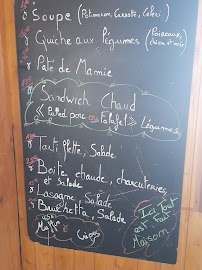 Soupe (Potimarron, Carotte, Céleri)
Quiche aux légumes (Poireaux,
Pâté de Mamie
Sandwich Chaud
« Pulled porc ou Falafel » Légumes
Tarte flette, Salade
Boite chaude, charcuteries
et Salade
Lasagne, Salade
Bruschetta, Salade
Ici Tout
est Fait
Maison